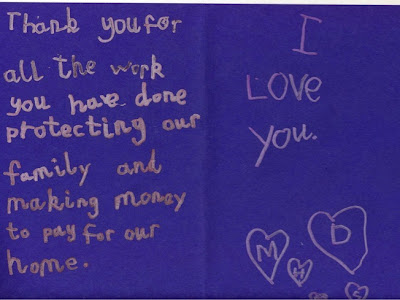 Thank you for
all the work
you have done
protecting our
family and
making money
to pay for our
home.
I
LOVE
you.
M
H
D
S